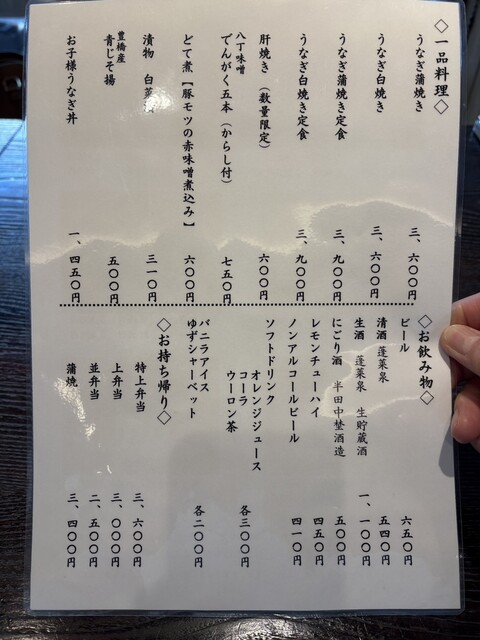 ◇一品料理◇
うなぎ蒲焼き 三、六〇〇円
うなぎ白焼き 三、六〇〇円
うなぎ蒲焼き定食 三、九〇〇円
うなぎ白焼き定食 三、九〇〇円
肝焼き（数量限定） 六〇〇円
八丁味噌
でんがく五本（からし付） 七五〇円
どて煮【豚モツの赤味噌煮込み】 六〇〇円
漬物 白菜 三一〇円
豊橋産
青じそ揚 五〇〇円
お子様うなぎ丼 一、四五〇円
◇お飲み物◇
ビール 六五〇円
清酒 蓬莱泉 五四〇円
生酒 蓬莱泉 生貯蔵酒 一、一〇〇円
にごり酒 半田中埜酒造 五〇〇円
レモンチューハイ 四五〇円
ノンアルコールビール 四一〇円
ソフトドリンク
オレンジジュース
コーラ
ウーロン茶 各三〇〇円
バニラアイス
ゆずシャーベット 各二〇〇円
◇お持ち帰り◇
特上弁当 三、六〇〇円
上弁当 三、〇〇〇円
並弁当 二、五〇〇円
蒲焼 三、四〇〇円